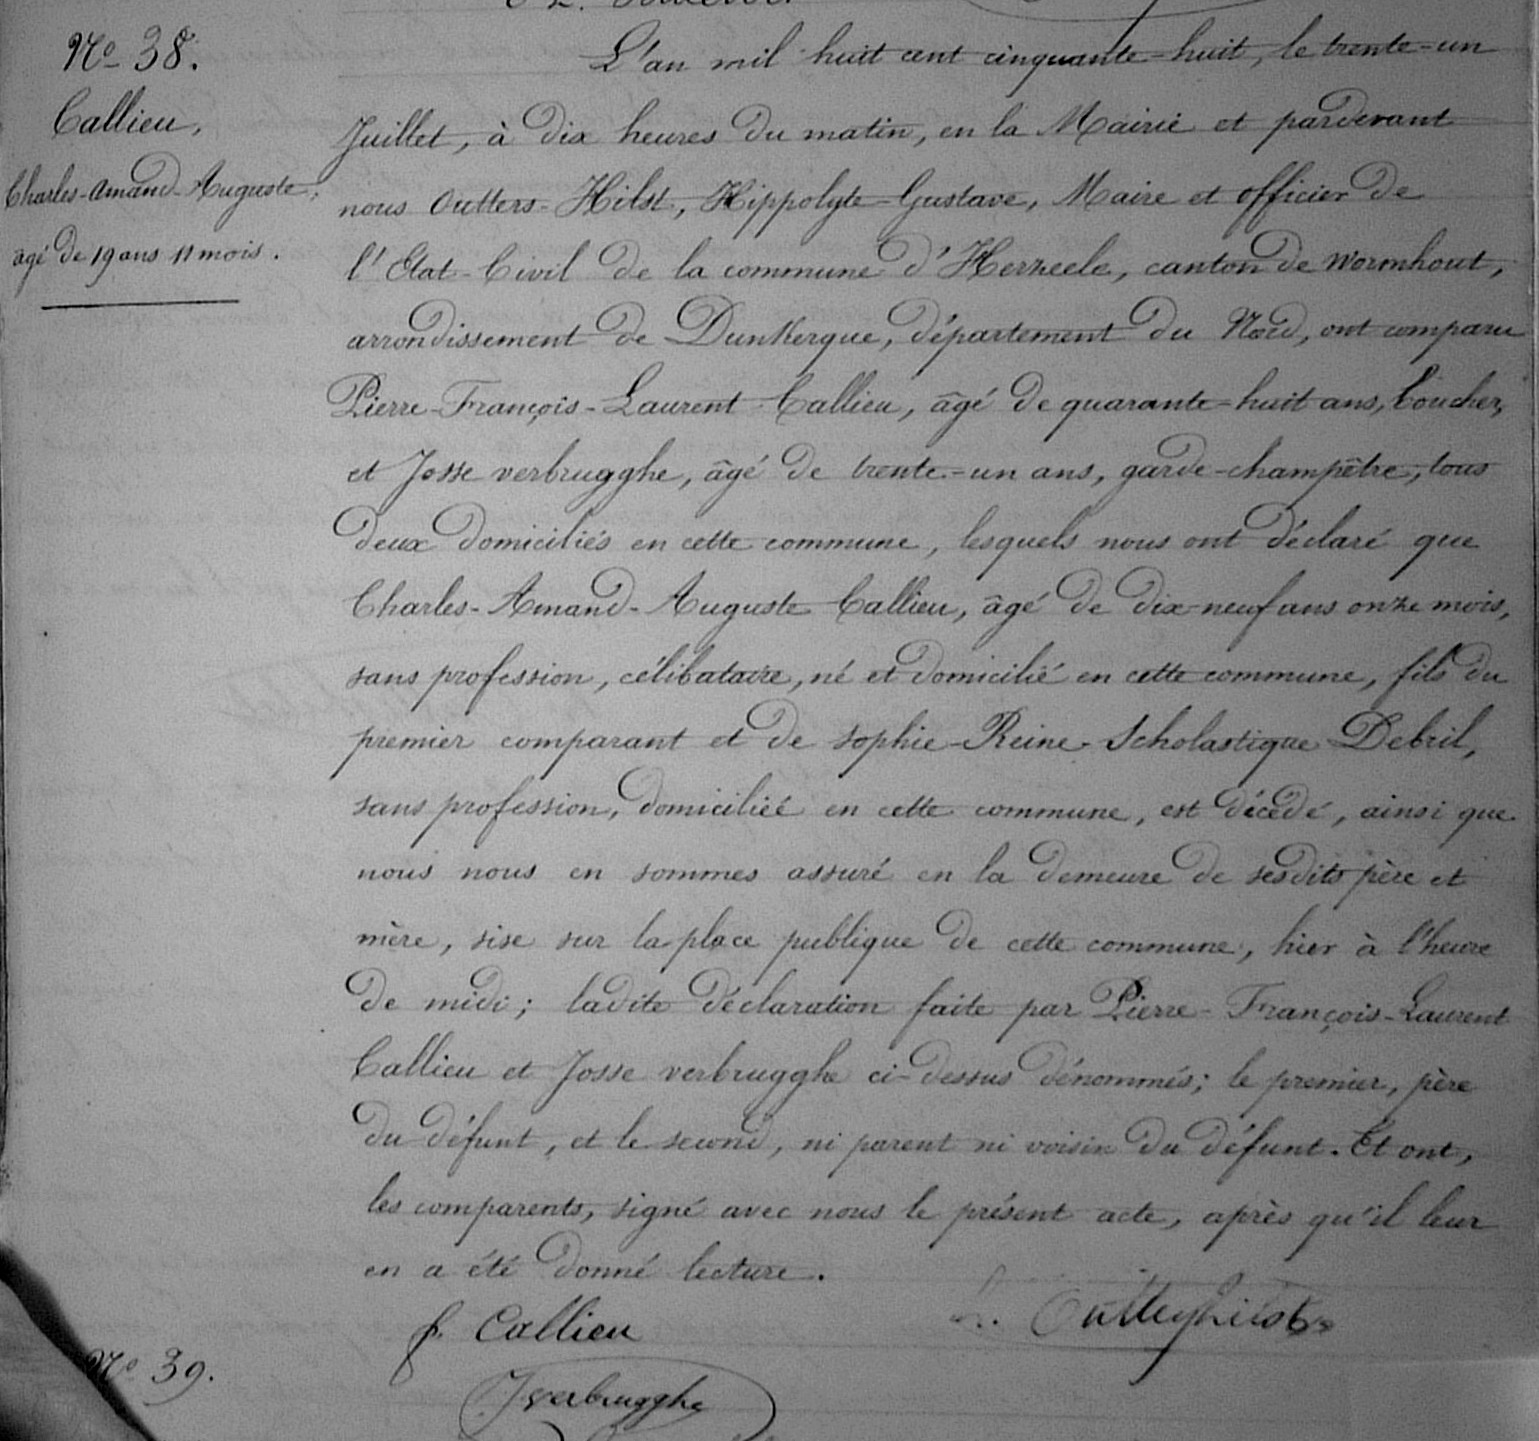 Nº 38.
Callieu,
Charles-Amand-Auguste,
âgé de 19 ans 11 mois.
L'an mil huit cent cinquante-huit, le trente-un
Juillet, à dix heures du matin, en la Mairie et pardevant
nous Outters-Hilst, Hippolyte-Gustave, Maire et officier de
l'Etat-Civil de la commune d'Herzeele, canton de Wormhout,
arrondissement de Dunkerque, département du Nord, ont comparu
Pierre-François-Laurent Callieu, âgé de quarante-huit ans, boucher,
et Josse verbrugghe, âgé de trente-un ans, garde-champêtre, tous
deux domiciliés en cette commune, lesquels nous ont déclaré que
Charles-Amand-Auguste Callieu, âgé de dix-neuf ans onze mois,
sans profession, célibataire, né et domicilié en cette commune, fils du
premier comparant et de Sophie-Reine-Scholastique Debril,
sans profession, domiciliée en cette commune, est décédé, ainsi que
nous nous en sommes assuré en la demeure de sesdits père et
mère, sise sur la place publique de cette commune, hier à l'heure
de midi; ladite déclaration faite par Pierre-François-Laurent
Callieu et Josse verbrugghe ci-dessus dénommés; le premier, père
du défunt, et le second, ni parent ni voisin du défunt. Et ont,
les comparents, signé avec nous le présent acte, après qu'il leur
en a été donné lecture.
f. Callieu
Outtershilst
Jverbrugghe
Nº 39.